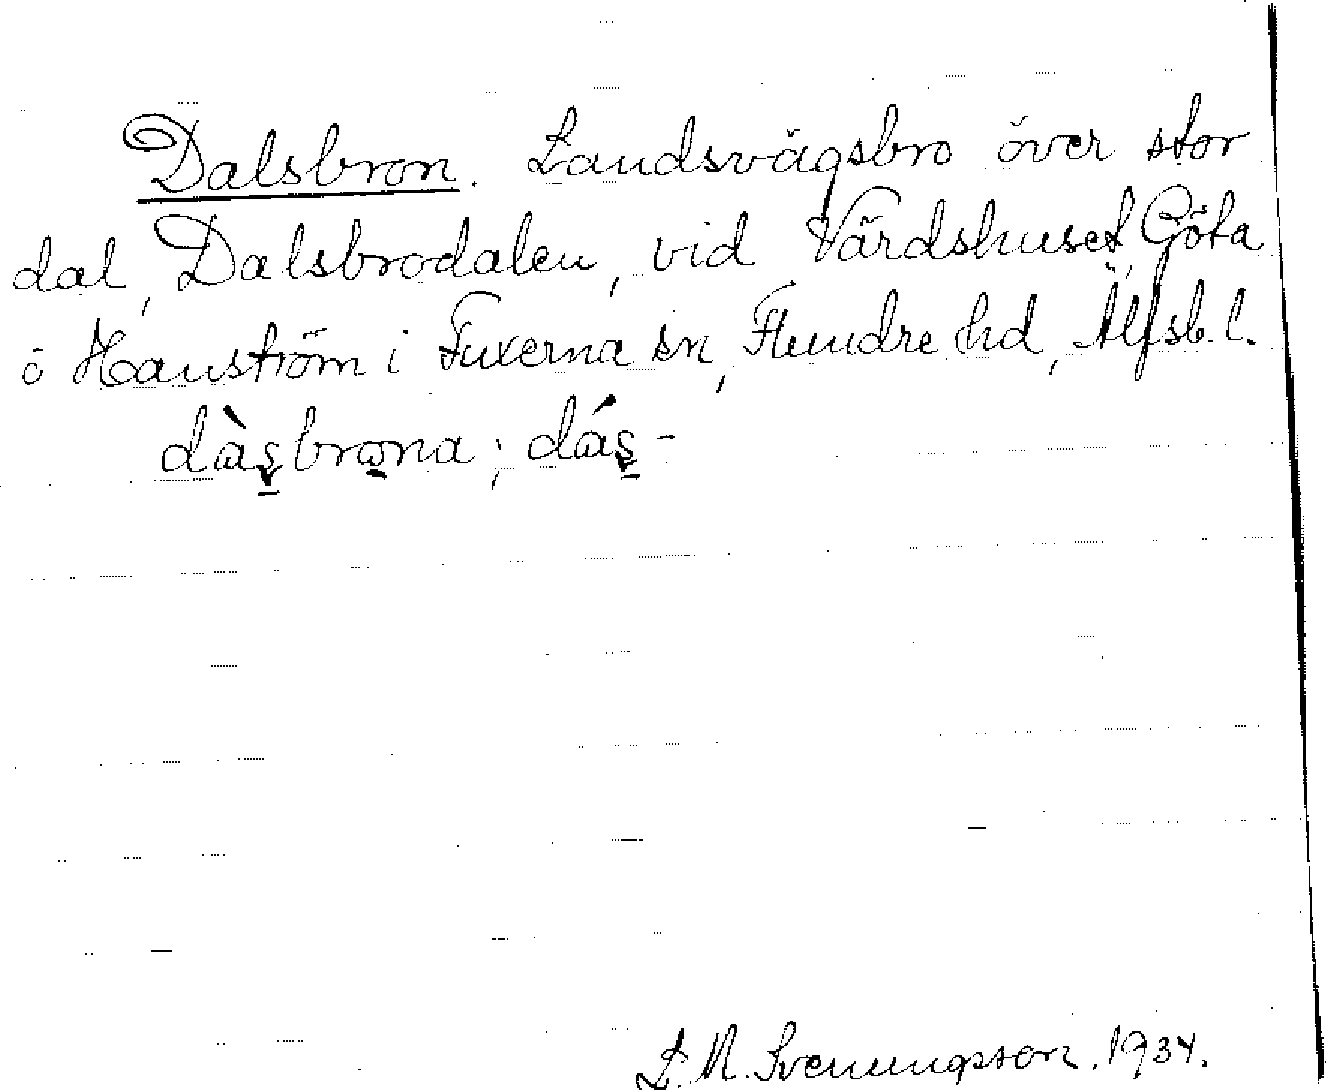 Dalsbron. Landsvägsbro över stor
dal, Dalsbrodalen, vid Värdshuset Göta
ö Hanström i Fuxerna sn, Flundre hd, Älfsb. l.
dàs̬brona; dás̬-
L. M. Svenungsson. 1934.